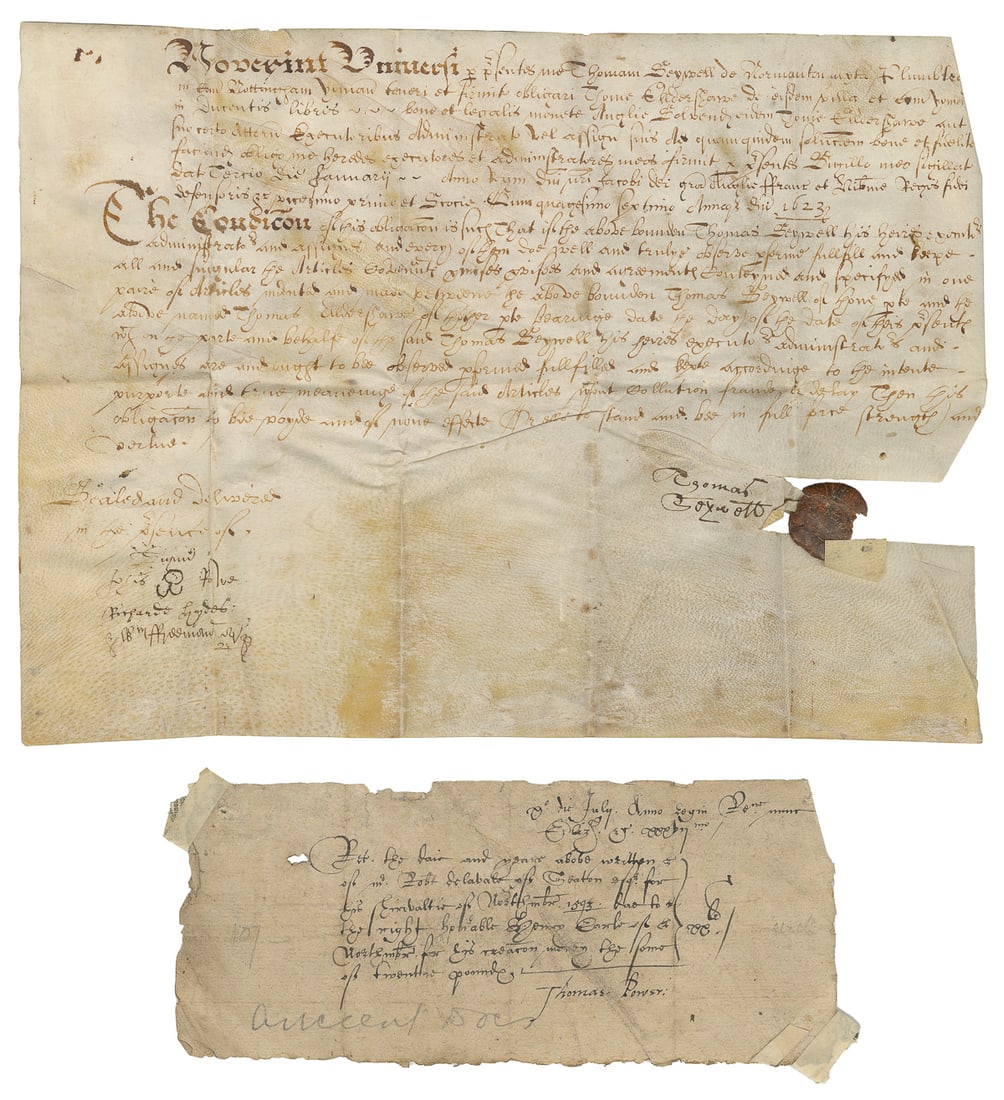 Noverint Universi per presentes me Thomam Teywell de Normanton juxta Plumbtre
in Com Nottingham yoman teneri et firmit obligari Thome Ellershawe de eisdem villa et Com yoman
in Ducentis libris bone et legalis monete Anglie Solvend eidem Thome Ellershawe aut
suo certo Attorn Executoribus Administrat vel assign suis Ad quamquidem soluciem bene et fidelit
faciend obligo me heredes executores et administratores meos firmit p presentes Sigillo meo sigillat
Dat Tercio die January Anno Regni Dni nri Jacobi dei gra Anglie ffranc et Hibnie Regis fidei
defensoris &c vicesimo primo et Scocie Quinquagesimo septimo Annoq dni 1623
The Condicon of this obligacon is such That if the above bounden Thomas Teywell his heires execut
administrat and assignes and every of them doe well and trulye observe pforme fullfill and kepe
all and singular the Articles Covenants and agreements Conteyned and specifyed in one
paire of Articles indented and made betweene the above bounden Thomas Teywell of thone pte and the
above named Thomas Ellershawe of thother pte bearinge date the day of the date of theis psents
wch on the parte and behalfe of the said Thomas Teywell his heires executs administrats and
assignes are and ought to bee observed pformed fullfilled and kepte accordinge to the intente
purporte and true meaninge of the said Articles wthout Collution fraude or delay Then this
obligacon to bee voyde and of none effecte Or els to stand and bee in full force strength and
vertue
Sealed and delivered
in the psence of
Thomas
Teywell
Signu
Richarde Hydes
ffreeman
xo die July Anno Regni Rene nunc
Eliz. &c xxxvii mo
Rec. the daie and yeare above written
of mr Robt delavale of Seaton esqr for
his Shirivaltie of Northumbr 1593 due to
the right honorable Henry Earle of
Northumbr for his creacon money the some
of twentie poundes
xx li
Thomas Power
Ancient Docs